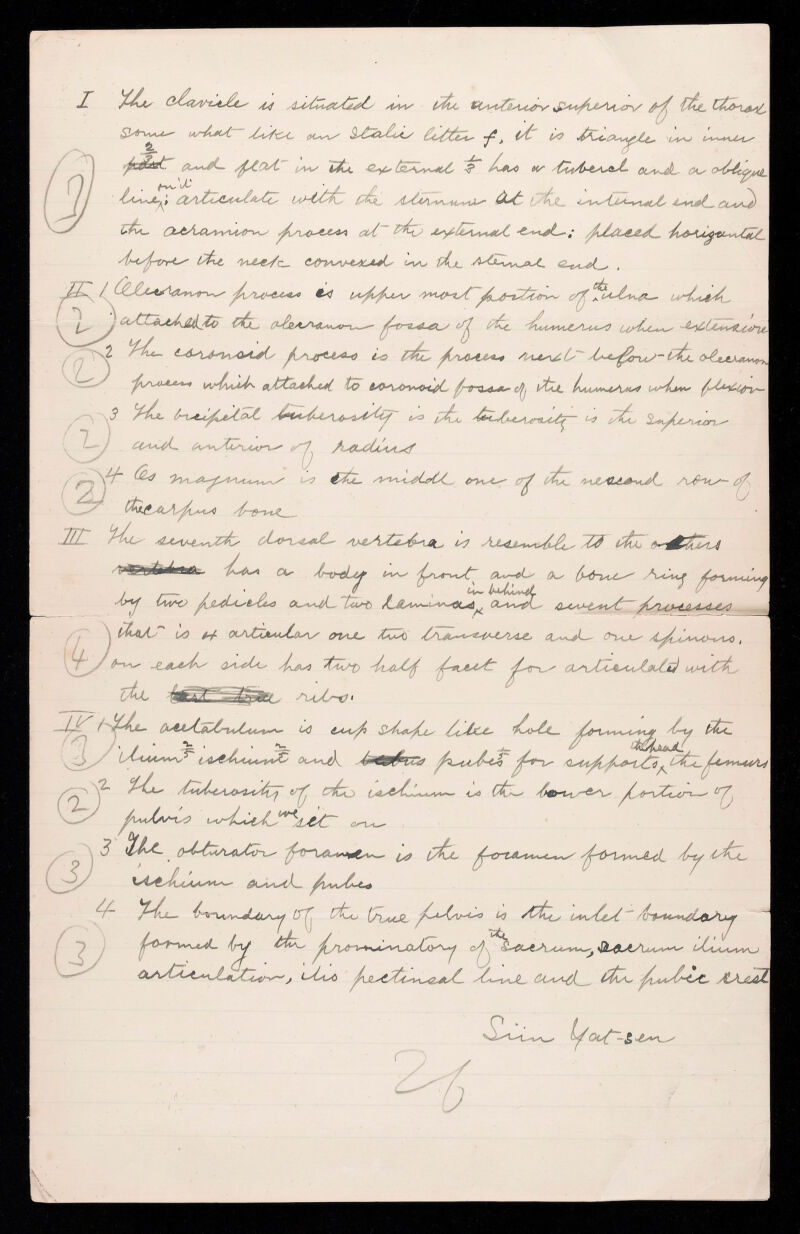 I The clavicle is situated in the anterior superior of the thorax
some what like an Italic litter f. it is triangle in inner
2/3
part and flat in the external 1/3 has a tubercl and a oblique
on it
line: articulate with the sternum at the internal end and
7
the acramion process at the external end: placed horizontal
before the neck convexed in the sternal end.
II 1 Olecranon process is upper most portion of the ulna which
2 attached to the olecranon fossa of the humerus when extension
2 The coronoid process is the process next before the olecranon
2 process which attached to coronoid fossa of the humerus when flexion
3 The bicipital tuberosity is the tuberosity is the superior
2 and anterior of radius
4 Os magnum is the middl one of the second row of
2 the carpus bone
III The seventh dorsal vertebra is resemble to the others
vertebra has a body in front and a bone ring forming
in behind
by two pedicles and two laminas, and sevent processes
4 that is 4 articular one two transverse and one spinous.
on each side has two half facet for articulated with
the ribs.
IV 1 The acetabulum is cup shape like hole forming by the
the head
3 ilium 2/5 ischium 2/5 and pubes 1/5 for supports the femurs
2 The tuberosity of the ischium is the lower portion of
2 pulvis which we sit on
3 The obturator foramen is the foramen formed by the
3 ischium and pubes
4 The boundary of the true pelvis is the inlet boundary
3 formed by the prominatory of the sacrum, sacrum ilium
articulation, ilio pectinsal line and the pubic crest
Sün Yat-sen
26